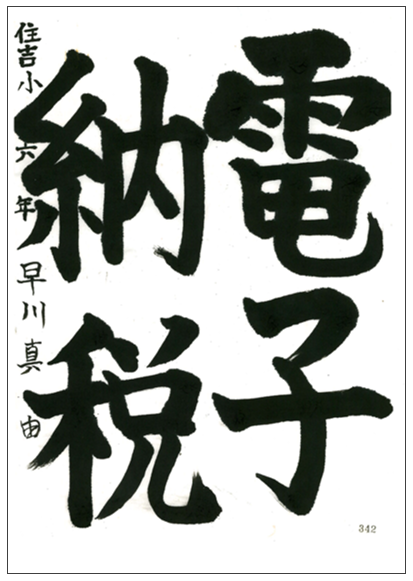 電子
納税
住吉小六年早川真由
342